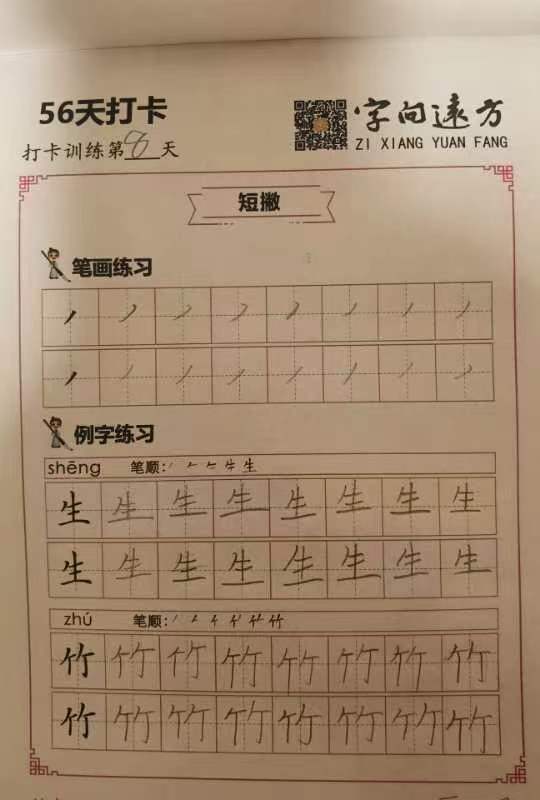 56天打卡
字向远方
ZI XIANG YUAN FANG
打卡训练第8天
短撇
笔画练习
例字练习
shēng 笔顺:
生 生 生 生 生 生 生 生
生 生 生 生 生 生 生 生
zhú 笔顺:
竹 竹 竹 竹 竹 竹 竹 竹
竹 竹 竹 竹 竹 竹 竹 竹